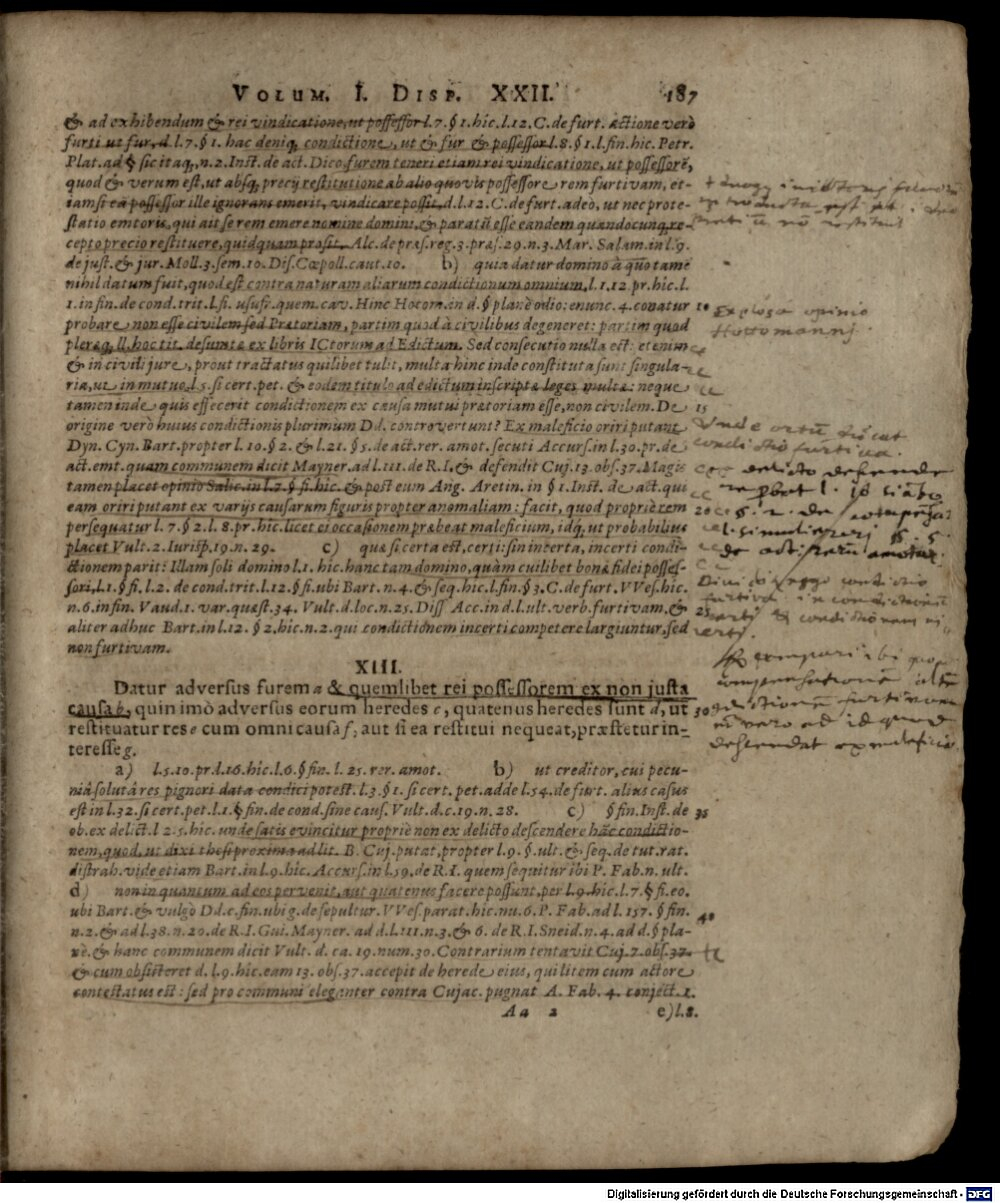 VOLUM. I. DISP. XXII. 187
& ad exhibendum & rei vindicatione, ut possessor l. 7. § 1. hic. l. 12. C. de furt. actione verò
furti ut fur, d. l. 7. § 1. hac deniq; condictione, ut & fur & possessor l. 8. § 1. l. fin. hic. Petr.
Plat. ad § sic itaq;, n. 2. Inst. de act. Dico furem teneri etiam rei vindicatione, ut possessorē,
quod & verum est, ut absq; precij restitutione ab alio quovis possessore rem furtivam, et-
iamsi eā possessor ille ignorans emerit, vindicare possit, d. l. 2. C. de furt. adeò, ut nec prote-
statio emtoris, qui ait se rem emere nomine domini, & paratū esse eandem quandocunq; re-
cepto precio restituere, quidquam prosit. Alc. de præs. reg. 3. præs. 29. n. 3. Mar. Salam. in l. 9.
de just. & jur. Moll. 3. sem. 10. Dis. Cœpoll. caut. 10. b) quia datur domino à quo tamē
nihil datum fuit, quod est contra naturam aliarum condictionum omnium, l. 1. 12. pr. hic. l.
1. in fin. de cond. trit. l. fi. usufr. quem. cav. Hinc Hotoman d. § planè odio: enunc. 4. conatur 10
probare, non esse civilem sed Prætoriam, partim quod à civilibus degeneret: partim quod
pleræq; ll. hoc tit. desumtæ ex libris ICtorum ad Edictum. Sed consecutio nulla est: etenim
& in civili jure, prout tractatus quilibet tulit, multa hinc inde constituta sunt singula-
ria, ut in mutuo l. 5. si cert. pet. & eodem titulo ad edictum inscriptæ leges multæ: neque
tamen inde quis effecerit condictionem ex causa mutui prætoriam esse, non civilem. De 15
origine verò huius condictionis plurimum Dd. controvertunt? Ex maleficio oriri putant
Dyn. Cyn. Bart. propter l. 10. § 2. & l. 21. § 5. de act. rer. amot. secuti Accurs. in l. 30. pr. de
act. emt. quam communem dicit Mayner. ad l. 111. de R. I. & defendit Cuj. 13. obs. 37. Magis
tamen placet opinio Salic. in l. 7. § fi. hic. & post eum Ang. Aretin. in § 1. Inst. de act. qui
eam oriri putant ex varijs causarum figuris propter anomaliam: facit, quod propriè rem 20
persequatur l. 7. § 2. l. 8. pr. hic. licet ei occasionem præbeat maleficium, idq; ut probabilius
placet Vult. 2. Iurisp. 19. n. 29. c) quæ si certa est, certi: sin incerta, incerti condi-
ctionem parit: Illam soli domino l. 1. hic. hanc tam domino, quàm cuilibet bonæ fidei posses-
sori, l. 1. § fi. l. 2. de cond. trit. l. 12. § fi. ubi Bart. n. 4. & seq. hic. l. fin. § 3. C. de furt. VVes. hic.
n. 6. in fin. Vaud. 1. var. quæst. 34. Vult. d. loc. n. 25. Diss. Acc. in d. l. ult. verb. furtivam. & 25
aliter adhuc Bart. in l. 12. § 2. hic. n. 2. qui condictionem incerti competere largiuntur, sed
non furtivam.
XIII.
Datur adversus furem a & quemlibet rei possessorem ex non justa
causa b, quin imò adversus eorum heredes c, quatenus heredes sunt d, ut 30
restituatur res e cum omni causa f, aut si ea restitui nequeat, præstetur in-
teresse g.
a) l. 5. 10. pr. l. 16. hic. l. 6. § fin. l. 25. rer. amot. b) ut creditor, cui pecu-
niâ solutâ res pignori data condici potest. l. 3. § 1. si cert. pet. adde l. 54. de furt. alius casus
est in l. 32. si cert. pet. l. 1. § fin. de cond. sine caus. Vult. d. c. 19. n. 28. c) § fin. Inst. de 35
ob. ex delict. l. 2. 5. hic. unde satis evincitur propriè non ex delicto descendere hæc condictio-
nem, quod, ut dixi thesi proxima ad lit. B. Cuj. putat, propter l. 9. § ult. & seq. de tut. rat.
distrah. vide etiam Bart. in l. 9. hic. Accurs. in l. 59. de R. I. quem sequitur ibi P. Fab. n. ult.
d) non in quantum ad eos pervenit, aut quatenus facere possunt, per l. 9. hic. l. 7. § fi. eo.
ubi Bart. & vulgò Dd. c. fin. ubi g. de sepultur. VVes. parat. hic. nu. 6. P. Fab. ad l. 157. § fin. 40
n. 2. & ad l. 38. n. 20. de R. I. Gui. Mayner. ad d. l. 111. n. 3. & 6. de R. I. Sneid. n. 4. ad d. § pla-
nè. & hanc communem dicit Vult. d. ca. 19. num. 30. Contrarium tentavit Cuj. 7. obs. 37.
& cum obsisteret d. l. 9. hic. eam 13. obs. 37. accepit de herede eius, qui litem cum actore
contestatus est: sed pro communi eleganter contra Cujac. pugnat A. Fab. 4. conject. 1.
Aa 2 e) l. 8.
Explosa opinio
Hottomannj.
Unde ortū ducat
condictio furtiva.
delicto
l.
§. 2. de
condictio
furtiva
certj & condictionem
certj.
compensationē
vero ad id quod
descendat ex maleficio
Digitalisierung gefördert durch die Deutsche Forschungsgemeinschaft - DFG